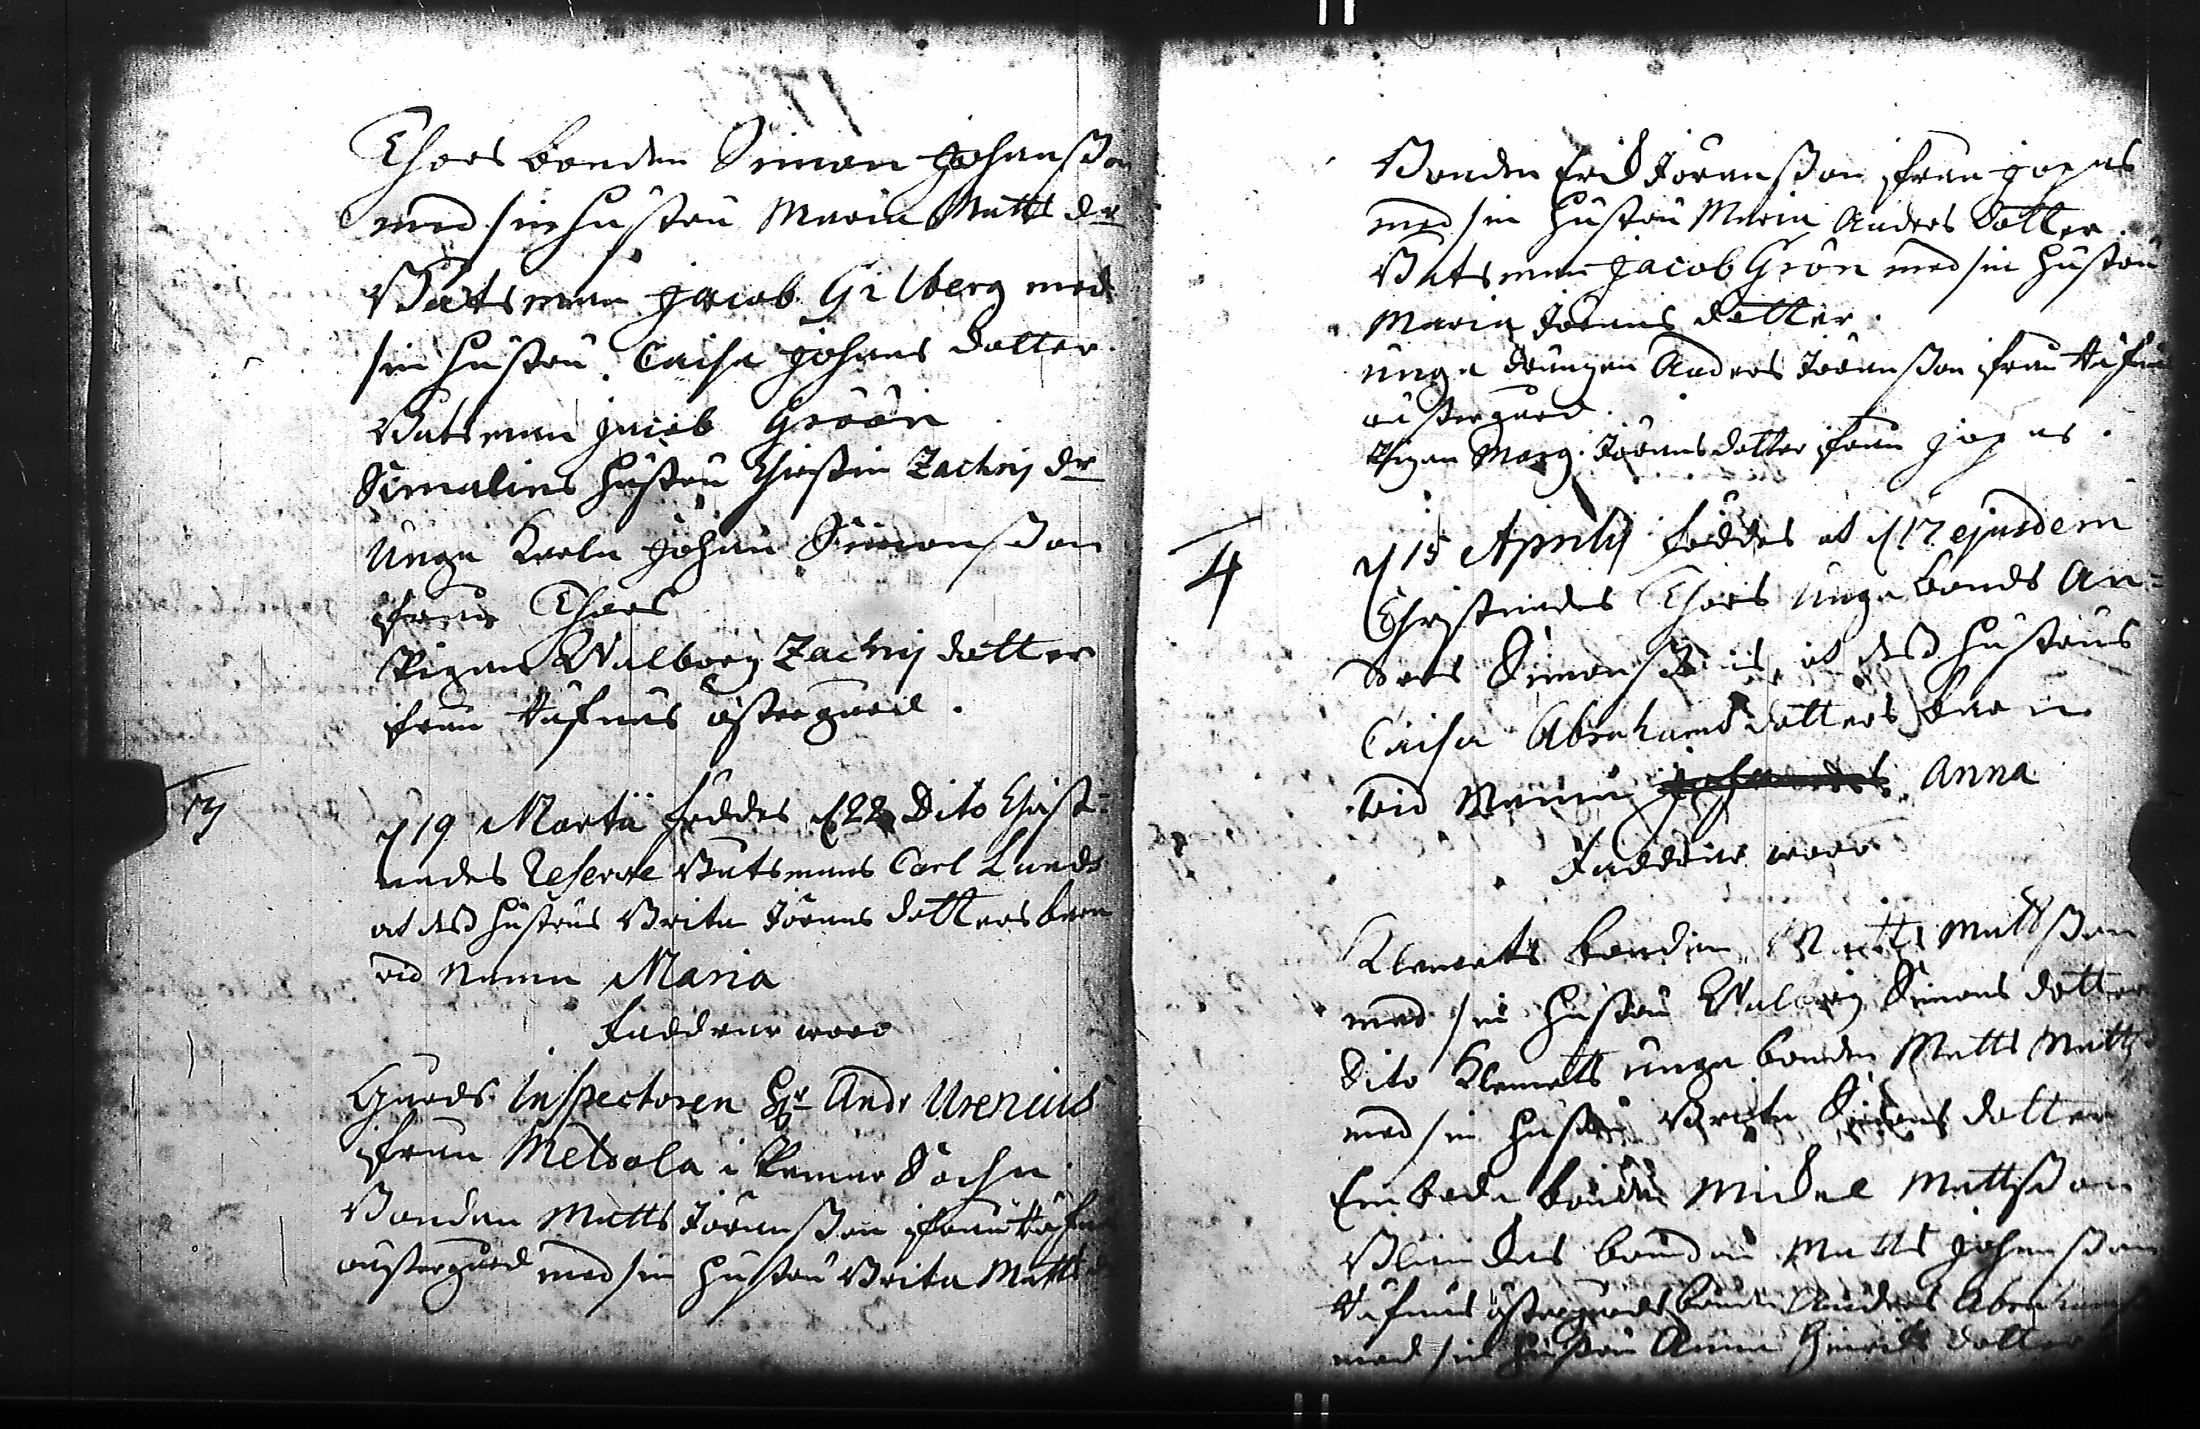 Thors bonden Simon Johansson
med sin hustru Maria Matts dr
Båtsman Jacob Gilberg med
sin hustru Caisa Johans dotter.
Båtsman Jacob Gröön
hustru Christin Zachrij dr
Unga Karln Johan Simonsson
från Thors
Pigan Walborg Zachrij dotter
från östergård.
3
d 19 Martii föddes d 22 Dito Christ-
nades Reserve Båtsmans Carl Lunds
at dess hustrus Brita Jörans dotters barn
vid Namn Maria
Faddrar woro
Gårds Inspectoren Hr Andr Urenius
från Meltola i Pemar Sochn
Bonden Matts Jöransson från
östergård med sin hustru Brita Matts
Bonden Erik Jöransson från
med sin hustru Maria Anders dotter.
Båtsman Jacob Grön med sin hustru
Maria Jörans dotter.
unga drängen Anders Jöransson från
östergård.
Pigan Marg. Jörans dotter från
4
d 15 Aprilij föddes at d 17 ejusdem
Christnades Thors Unga bonds An-
ders Simonssons, at dess hustrus
Caisa Abrahams dotters barn
wid Namn Anna
Faddrar woro
Klemets bonden Matts Mattsson
med sin hustru Walborg Simons dotter
Dito Klemets unga bonden Matts Matts
med sin hustru Brita Simons dotter
bonden Michel Mattsson
bonden Matts Johansson
östergårds bonden Anders Abrahams
med sin hustru Anna Hinrichs dotter